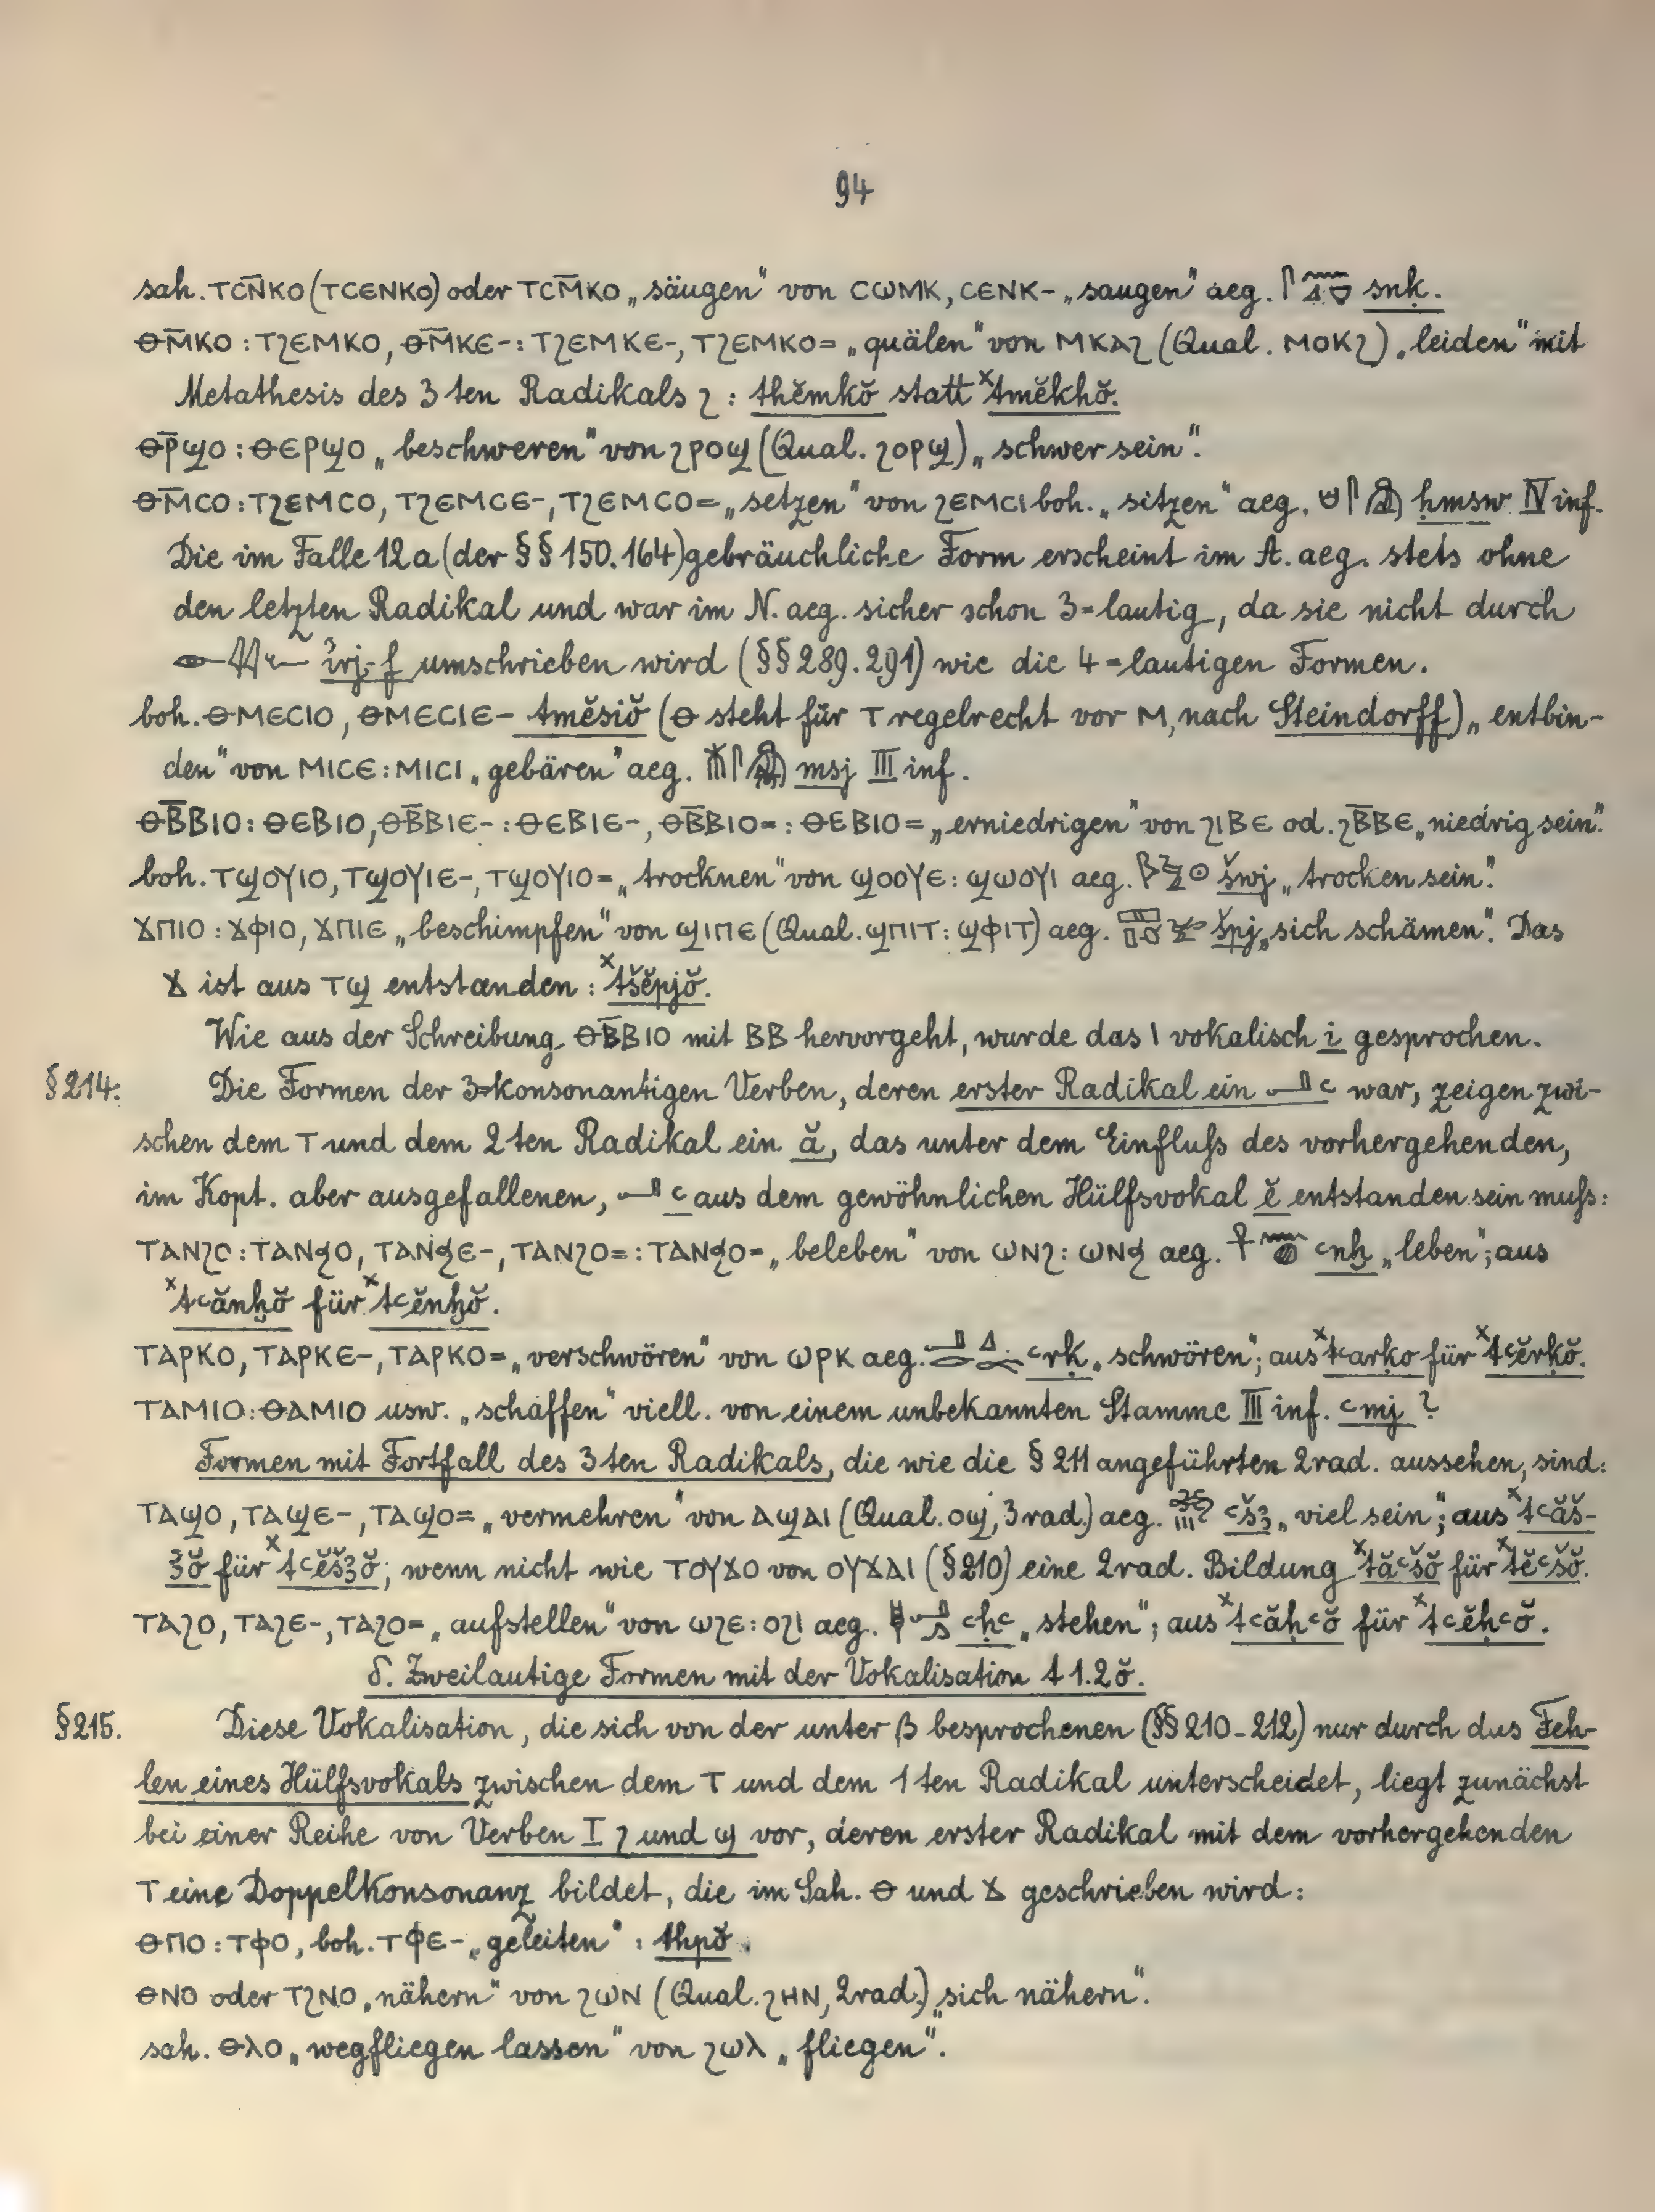 94
sah. ⲦⲤⲚ̄ⲔⲞ (ⲦⲤⲈⲚⲔⲞ) oder ⲦⲤⲘ̄ⲔⲞ „säugen" von ⲤⲰⲘⲔ, ⲤⲈⲚⲔ- „saugen" aeg. snḳ.
ⲐⲘ̄ⲔⲞ : ⲦϨⲈⲘⲔⲞ, ⲐⲘ̄ⲔⲈ- : ⲦϨⲈⲘⲔⲈ-, ⲦϨⲈⲘⲔⲞ= „quälen" von ⲘⲔⲀϨ (Qual. ⲘⲞⲔϨ) „leiden" mit
Metathesis des 3ten Radikals Ϩ : thĕmkŏ statt ˣtmĕkhŏ.
ⲐⲢ̄ϢⲞ : ⲐⲈⲢϢⲞ „beschweren" von ϨⲢⲞϢ (Qual. ϨⲞⲢϢ) „schwer sein".
ⲐⲘ̄ⲤⲞ : ⲦϨⲈⲘⲤⲞ, ⲦϨⲈⲘⲤⲈ-, ⲦϨⲈⲘⲤⲞ= „setzen" von ϨⲈⲘⲤⲒ boh. „sitzen" aeg. ḥmsw IV inf.
Die im Falle 12a (der §§ 150. 164) gebräuchliche Form erscheint im A. aeg. stets ohne
den letzten Radikal und war im N. aeg. sicher schon 3=lautig, da sie nicht durch
irj-f umschrieben wird (§§ 289. 291) wie die 4=lautigen Formen.
boh. ⲐⲘⲈⲤⲒⲞ, ⲐⲘⲈⲤⲒⲈ- tmĕsiŏ (Ⲑ steht für Ⲧ regelrecht vor Ⲙ, nach Steindorff) „entbin-
den" von ⲘⲒⲤⲈ : ⲘⲒⲤⲒ „gebären" aeg. msj III inf.
ⲐⲂ̄ⲂⲒⲞ : ⲐⲈⲂⲒⲞ, ⲐⲂ̄ⲂⲒⲈ- : ⲐⲈⲂⲒⲈ-, ⲐⲂ̄ⲂⲒⲞ= : ⲐⲈⲂⲒⲞ= „erniedrigen" von ϨⲒⲂⲈ od. ϨⲂ̄ⲂⲈ „niedrig sein".
boh. ⲦϢⲞⲨⲒⲞ, ⲦϢⲞⲨⲒⲈ-, ⲦϢⲞⲨⲒⲞ= „trocknen" von ϢⲞⲞⲨⲈ : ϢⲰⲞⲨⲒ aeg. šwj „trocken sein".
ϪⲠⲒⲞ : ϪⲪⲒⲞ, ϪⲠⲒⲈ „beschimpfen" von ϢⲒⲠⲈ (Qual. ϢⲠⲒⲦ : ϢⲪⲒⲦ) aeg. špj „sich schämen". Das
Ϫ ist aus ⲦϢ entstanden : ˣtšĕpjŏ.
Wie aus der Schreibung ⲐⲂ̄ⲂⲒⲞ mit ⲂⲂ hervorgeht, wurde das Ⲓ vokalisch i gesprochen.
§214. Die Formen der 3=konsonantigen Verben, deren erster Radikal ein 𓂝 ꜥ war, zeigen zwi-
schen dem Ⲧ und dem 2ten Radikal ein ă, das unter dem Einfluſs des vorhergehenden,
im Kopt. aber ausgefallenen, 𓂝 ꜥ aus dem gewöhnlichen Hülfsvokal ĕ entstanden sein muſs:
ⲦⲀⲚϨⲞ : ⲦⲀⲚϦⲞ, ⲦⲀⲚϦⲈ-, ⲦⲀⲚϨⲞ= : ⲦⲀⲚϦⲞ= „beleben" von ⲰⲚϨ : ⲰⲚϦ aeg. ꜥnḫ „leben"; aus
ˣtꜥănḫŏ für ˣtꜥĕnḫŏ.
ⲦⲀⲢⲔⲞ, ⲦⲀⲢⲔⲈ-, ⲦⲀⲢⲔⲞ= „verschwören" von ⲰⲢⲔ aeg. ꜥrḳ „schwören"; aus ˣtꜥarḳo für ˣtꜥĕrḳŏ.
ⲦⲀⲘⲒⲞ : ⲐⲀⲘⲒⲞ usw. „schaffen" viell. von einem unbekannten Stamme III inf. ꜥmj ?
Formen mit Fortfall des 3ten Radikals, die wie die § 211 angeführten 2rad. aussehen, sind:
ⲦⲀϢⲞ, ⲦⲀϢⲈ-, ⲦⲀϢⲞ= „vermehren" von ⲀϢⲀⲒ (Qual. ⲞϢ, 3rad.) aeg. ꜥšꜣ „viel sein"; aus ˣtꜥăš-
ꜣŏ für ˣtꜥĕšꜣŏ; wenn nicht wie ⲦⲞⲨϪⲞ von ⲞⲨϪⲀⲒ (§210) eine 2rad. Bildung ˣtăꜥšŏ für ˣtĕꜥšŏ.
ⲦⲀϨⲞ, ⲦⲀϨⲈ-, ⲦⲀϨⲞ= „aufstellen" von ⲰϨⲈ : ⲞϨⲒ aeg. ꜥḥꜥ „stehen"; aus ˣtꜥăḥꜥŏ für ˣtꜥĕḥꜥŏ.
δ. Zweilautige Formen mit der Vokalisation t 1.2ŏ.
§215. Diese Vokalisation, die sich von der unter β besprochenen (§§ 210-212) nur durch das Feh-
len eines Hülfsvokals zwischen dem Ⲧ und dem 1ten Radikal unterscheidet, liegt zunächst
bei einer Reihe von Verben I Ϩ und Ϣ vor, deren erster Radikal mit dem vorhergehenden
Ⲧ eine Doppelkonsonanz bildet, die im Sah. Ⲑ und Ϫ geschrieben wird:
ⲐⲠⲞ : ⲦⲪⲞ, boh. ⲦⲪⲈ- „geleiten" : thpŏ.
ⲐⲚⲞ oder ⲦϨⲚⲞ „nähern" von ϨⲰⲚ (Qual. ϨⲎⲚ, 2rad.) „sich nähern".
sah. ⲐⲖⲞ „wegfliegen lassen" von ϨⲰⲖ „fliegen".